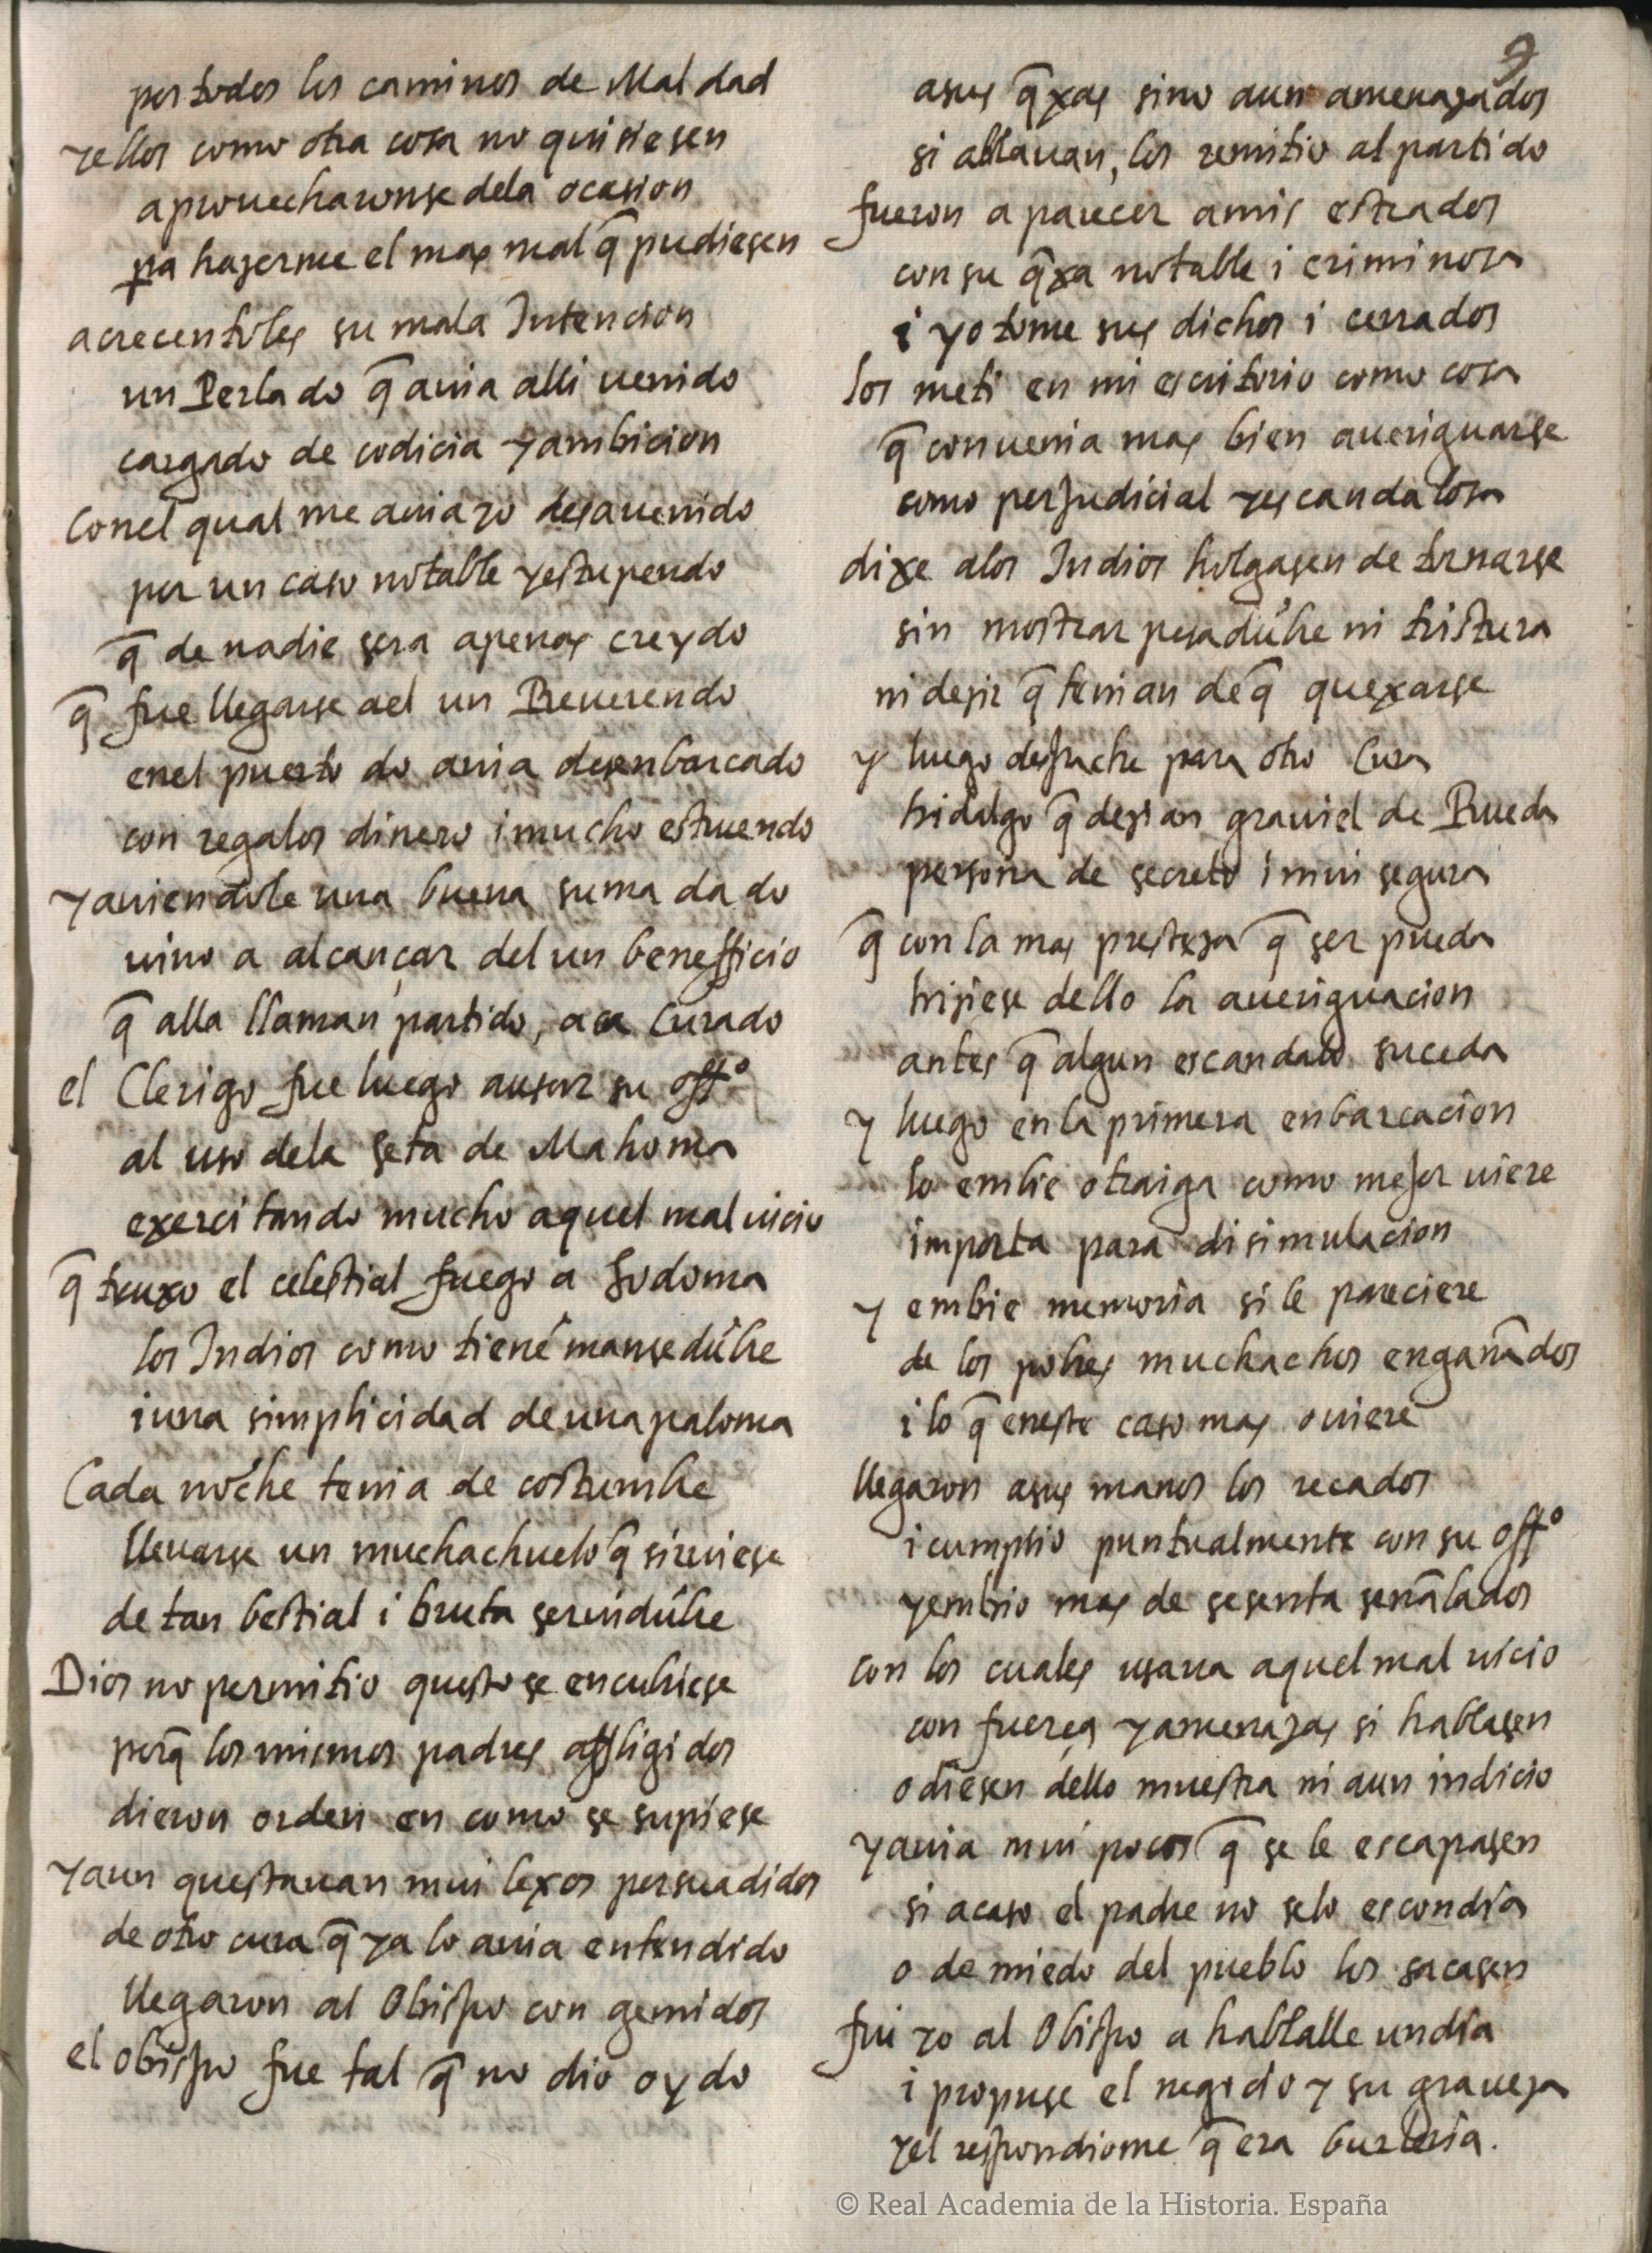 por todos los caminos de Maldad
y ellos como otra cosa no quisiesen
aprovecharonse dela ocasion
pa hazerme el mas mal q̃ pudiesen
acrecentoles su mala Intencion
un Perlado q̃ auia alli uenido
cargado de codicia y ambicion
Conel qual me auia yo desauenido
por un caso notable y estupendo
q̃ de nadie sera apenas creydo
q̃ fue llegarse ael un Reuerendo
enel puerto do auia desenbarcado
con regalos dinero i mucho estruendo
y auiendole una buena suma dado
uino a alcançar del un benefficio
q̃ alla llaman partido, aca Curado
el Clerigo fue luego a usar su offº
al uso dela seta de Mahoma
exercitando mucho aquel mal uicio
q̃ truxo el celestial fuego a Sodoma
los Indios como tienẽ mansedũbre
i una simplicidad de una paloma
Cada noche tenia de costumbre
lleuarse un muchachuelo q̃ siruiese
de tan bestial i bruta seruidũbre
Dios no permitio questo se encubriese
porq̃ los mismos padres affligidos
dieron orden en como se supiese
y aun questauan mui lexos persuadidos
de otro cura q̃ ya lo auia entendido
llegaron al Obispo con gemidos
el obispo fue tal q̃ no dio oydo
9
asus q̃xas sino aun amenazados
si ablauan, los remitio al partido
fueron a parecer amis estrados
con su q̃xa notable i criminosa
i yo tome sus dichos i cerrados
los meti en mi escritorio como cosa
q̃ conuenia mas bien aueriguarse
como perjudicial y escandalosa
dixe alos Indios holgasen de tornarse
sin mostrar pesadũbre ni tristura
ni dezir q̃ tenian de q̃ quexarse
y luego despache para otro Cura
hidalgo q̃ dezian grauiel de Rueda
persona de secreto i mui segura
q̃ con la mas presteza q̃ ser pueda
hiziese dello la aueriguacion
antes q̃ algun escandalo suceda
y luego en la primera enbarcacion
lo embie o traiga como mejor uiere
importa para disimulacion
y embie memoria si le pareciere
de los pobres muchachos engañados
i lo q̃ eneste caso mas ouiere
llegaron asus manos los recados
i cumplio puntualmente con su offº
y embio mas de sesenta señalados
con los cuales usaua aquel mal uicio
con fuerça y amenazas si hablasen
o diesen dello muestra ni aun indicio
y auia mui pocos q̃ se le escapasen
si acaso el padre no selo escondia
o de miedo del pueblo los sacasen
fui yo al Obispo a hablalle un dia
i propuse el negocio y su graueza
y el respondiome q̃ era burleria.
© Real Academia de la Historia. España